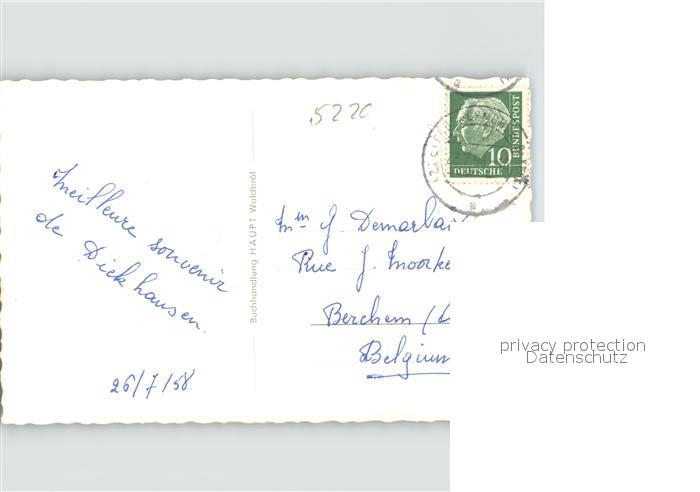 5220
10
DEUTSCHE
BUNDESPOST
Meilleure souvenir
de Dickhausen.
26/7/58
Buchhandlung HAUPT Waldbröl
J. Demarbai
Rue J. Moorke
Berchem (
Belgium
privacy protection
Datenschutz